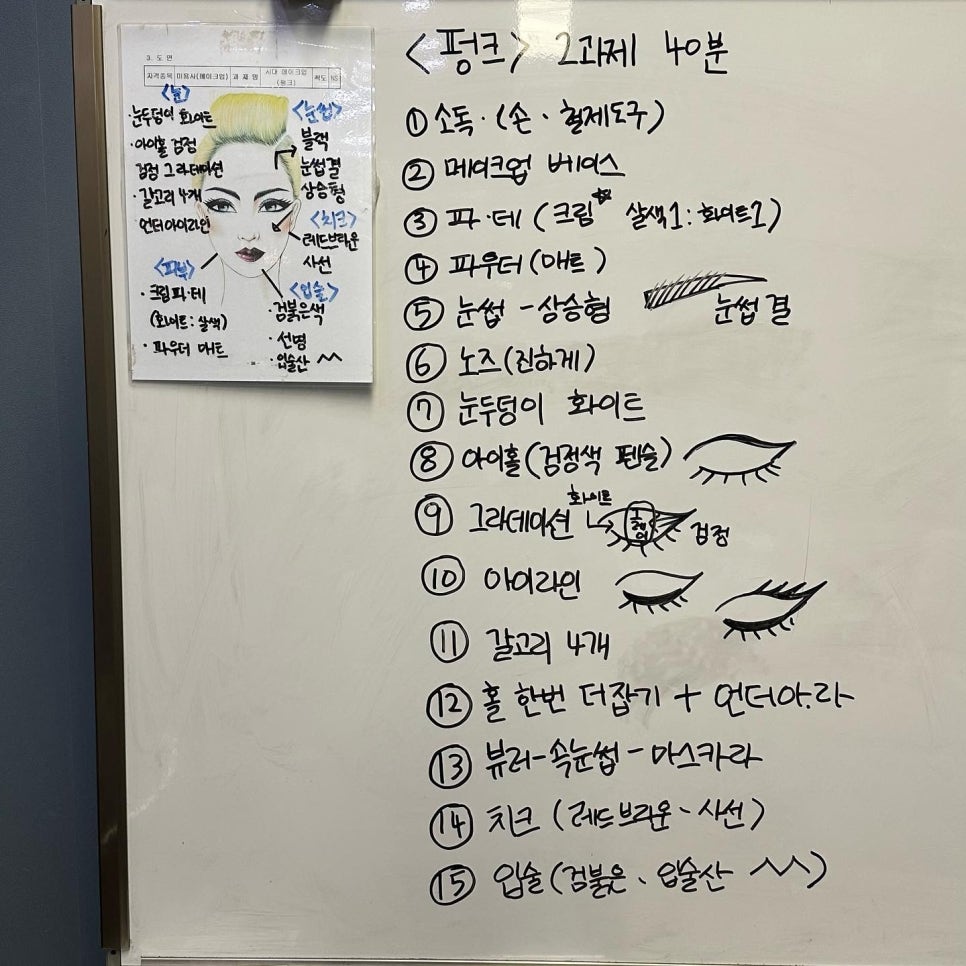 3. 도 면
자격종목 미용사(메이크업) 과 제 명 시대 메이크업 (펑크) 척도 NS
<눈>
눈두덩이 화이트
· 아이홀 검정
검정 그라데이션
· 갈고리 4개
언더아이라인
<눈썹>
블랙
눈썹결
상승형
<치크>
레드브라운
사선
<피부>
· 크림파·테
(화이트:살색)
· 파우더 매트
<입술>
· 검붉은색
· 선명
· 입술산
<펑크> 2과제 40분
① 소독·(손·철제도구)
② 메이크업 베이스
③ 파·테 (크림 살색1:화이트1)
④ 파우더(매트)
⑤ 눈썹 - 상승형 눈썹 결
⑥ 노즈(진하게)
⑦ 눈두덩이 화이트
⑧ 아이홀(검정색 펜슬)
⑨ 그라데이션 화이트 검정
⑩ 아이라인
⑪ 갈고리 4개
⑫ 홀 한번 더잡기 + 언더아.라
⑬ 뷰러-속눈썹-마스카라
⑭ 치크 (레드브라운、사선)
⑮ 입술(검붉은、입술산 )